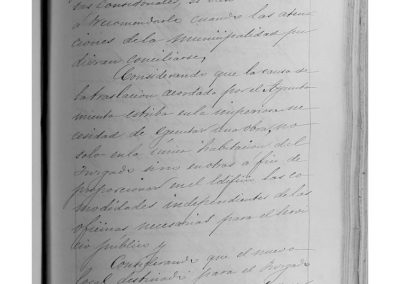 tas Consistoriales, se
a recomendarle cuando las aten-
ciones de la municipalidad pu-
dieran conciliarse,
Considerando que la causa de
la traslacion acordada por el Ayunta-
miento estriba en la imperiosa ne-
cesidad de ejecutar una obra, no
solo en la única habitacion del
Juzgado sino en otras a fin de
proporcionar en el Edificio las co-
modidades independientes de las
oficinas necesarias para el servi-
cio público y
Considerando que el nuevo
local destinado para el Juzgado